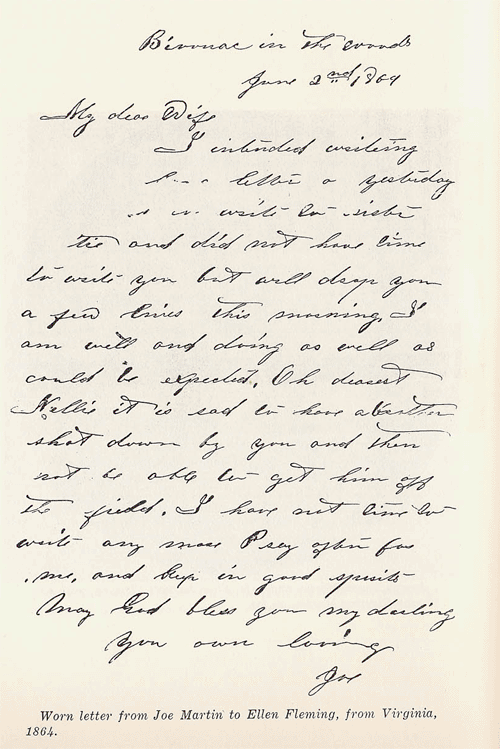 Bivouac in the woods
June 2nd 1864
My dear Wife
I intended writeing
letter yesterday
write to sister
tie and did not have time
to write you but will drop you
a few lines this morning, I
am well and doing as well as
could be expected. Oh dearest
Nellie it is sad to have a brother
shot down by you and then
not be able to get him off
the field. I have not time to
write any more Pray often for
me, and keep in good spirits
May God bless you my darling
You own loving
Joe
Worn letter from Joe Martin to Ellen Fleming, from Virginia,
1864.